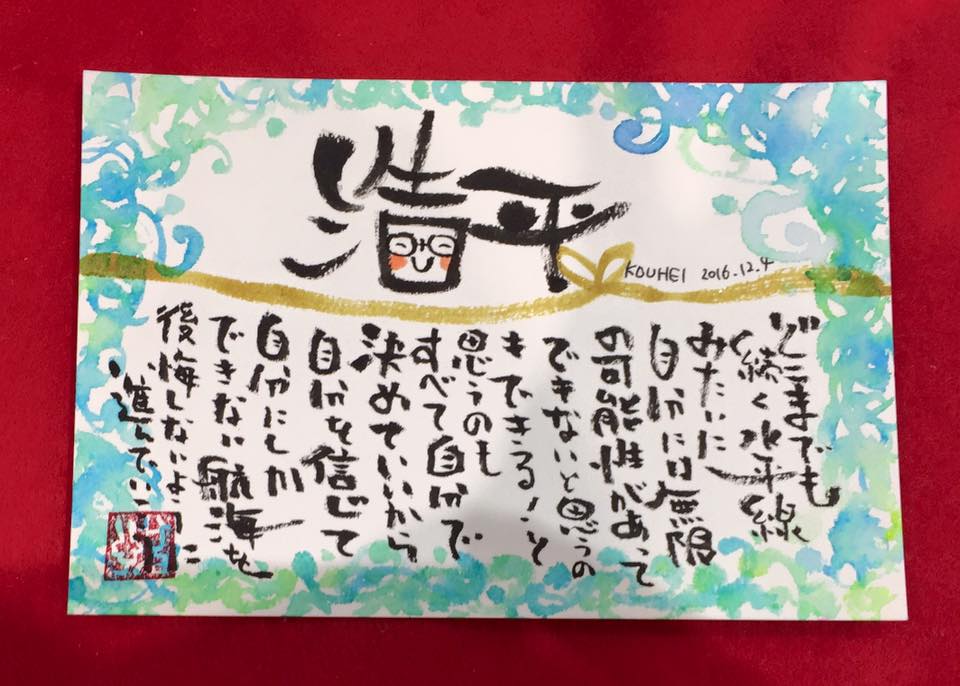 浩平
KOUHEI 2016.12.4
どこまでも
続く水平線
みたいに
自分には無限
の可能性があって
できないと思うの
もできる！と
思うのも
すべて自分で
決めていいから
自分を信じて
自分にしか
できない航海を
後悔しないように
進んでいこう